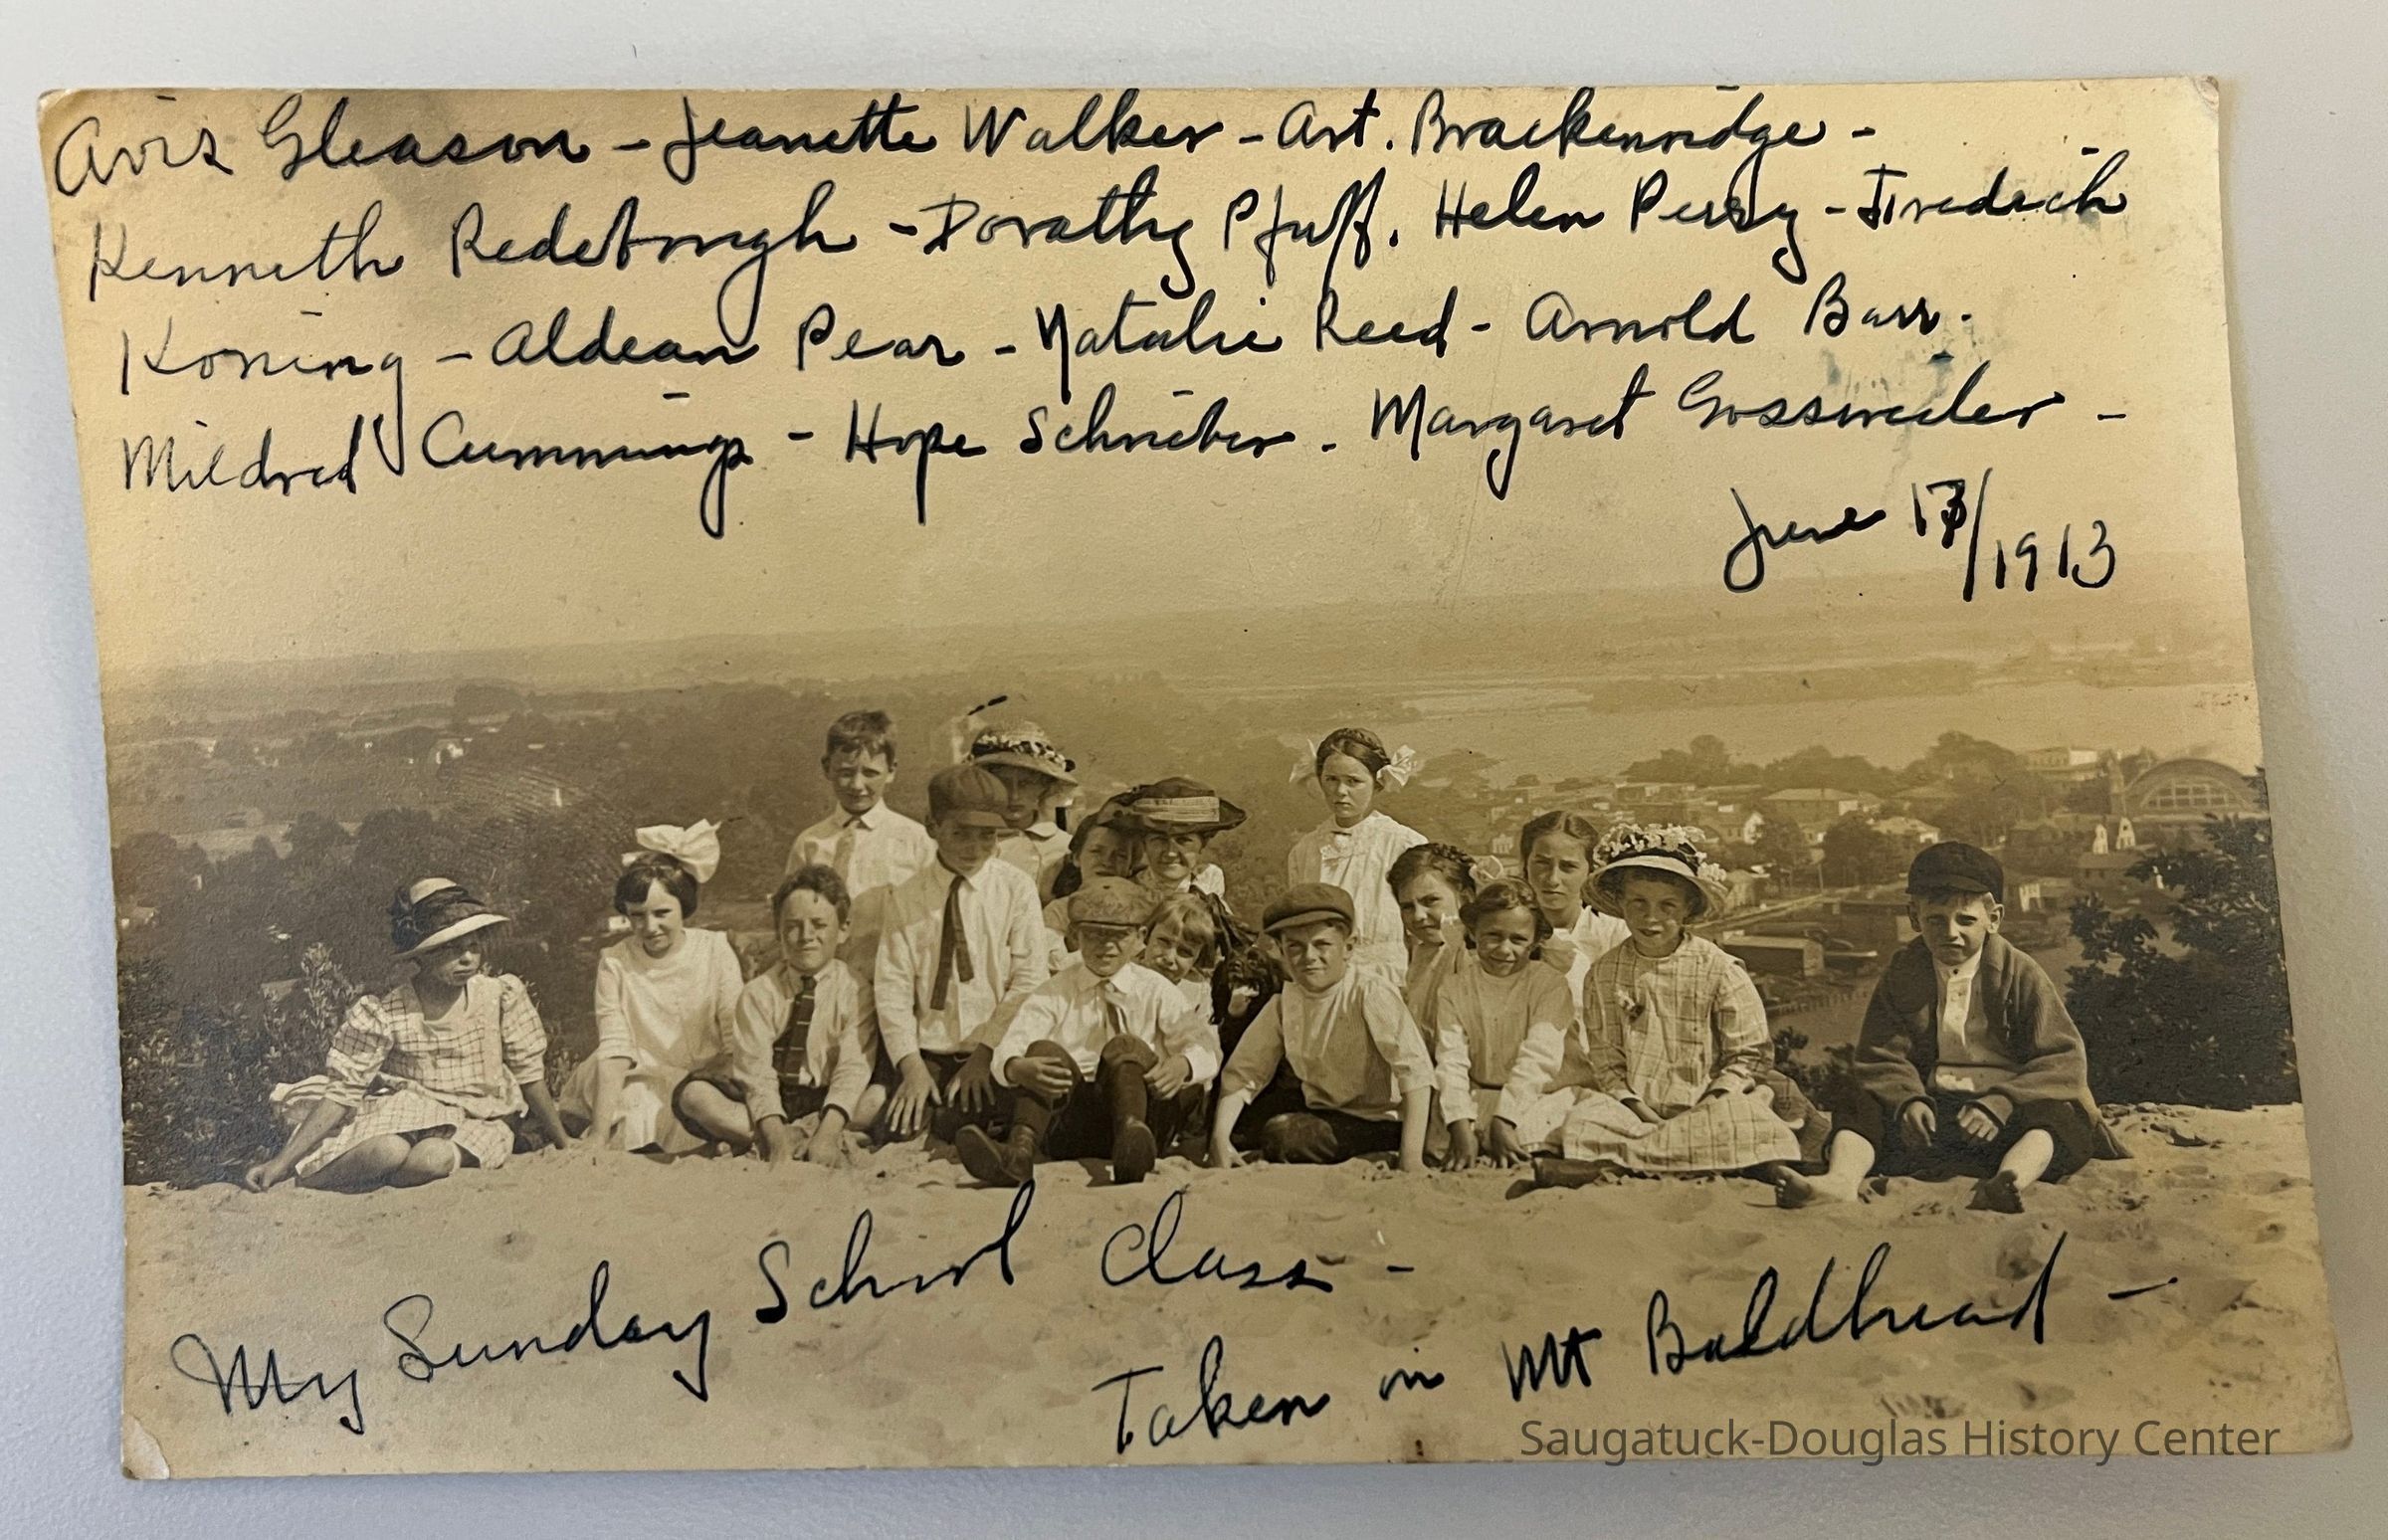 Avis Gleason - Jeanette Walker - Art. Brackenridge -
Kenneth Redebough - Dorathy Pfaff. Helen Perry - Friedrich
Koning - Aldean Pear - Natalie Reed - Arnold Barr.
Mildred Cummings - Hope Schrieber. Margaret Gossweiler -
June 13/1913
My Sunday School Class -
Taken in Mt Baldhead -
Saugatuck-Douglas History Center